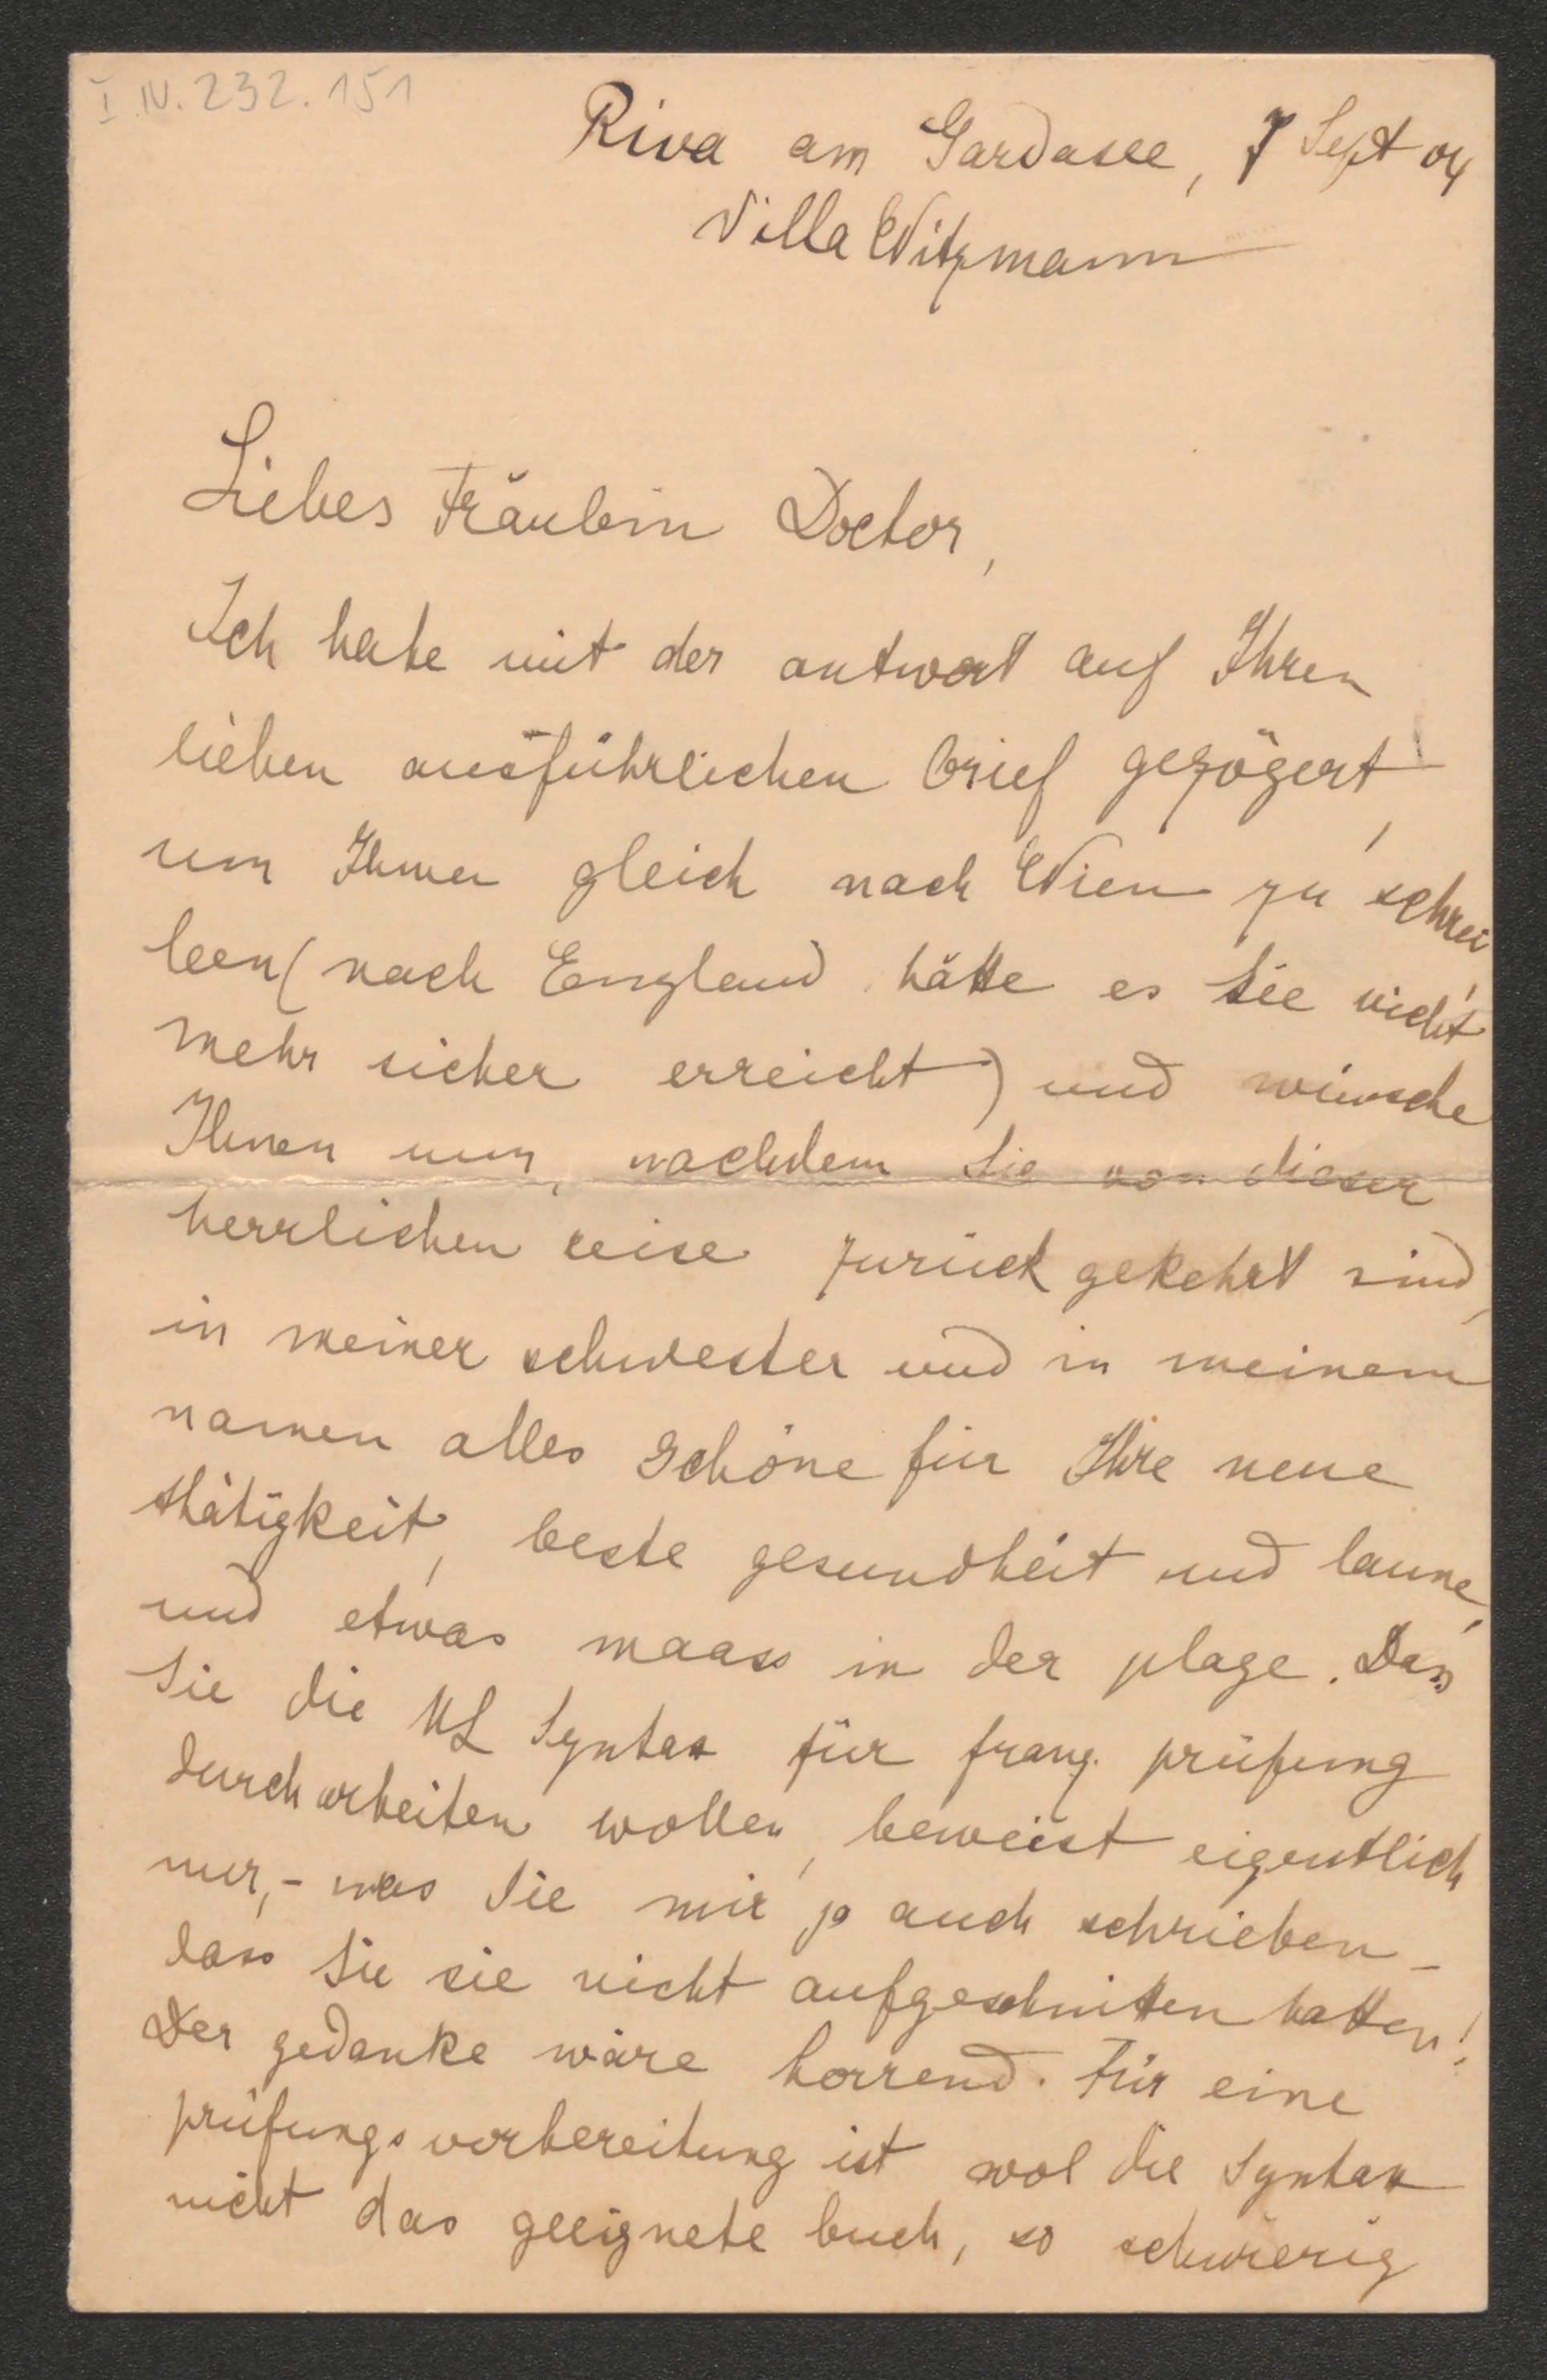 I.N. 232.151
Riva am Gardasee, 7 Sept 04
Villa Witzmann
Liebes Fräulein Doctor,
Ich habe mit der antwort auf Ihren
lieben ausführlichen brief gezögert,
um Ihnen gleich nach Wien zu schrei
ben (nach England hätte es Sie nicht
mehr sicher erreicht) und wünsche
Ihnen nun, nachdem Sie von dieser
herrlichen reise zurückgekehrt sind,
in meiner schwester und in meinem
namen alles Schöne für Ihre neue
thätigkeit, beste gesundheit und laune,
und etwas maass in der plage. Dass
Sie die ML Syntax für franz. prüfung
durcharbeiten wollen, beweist eigentlich
nur, - was Sie mir ja auch schrieben -
dass Sie sie nicht aufgeschnitten hatten!
Der gedanke wäre horrend. Für eine
prüfungsvorbereitung ist wol die Syntax
nicht das geeignete buch, so schwierig